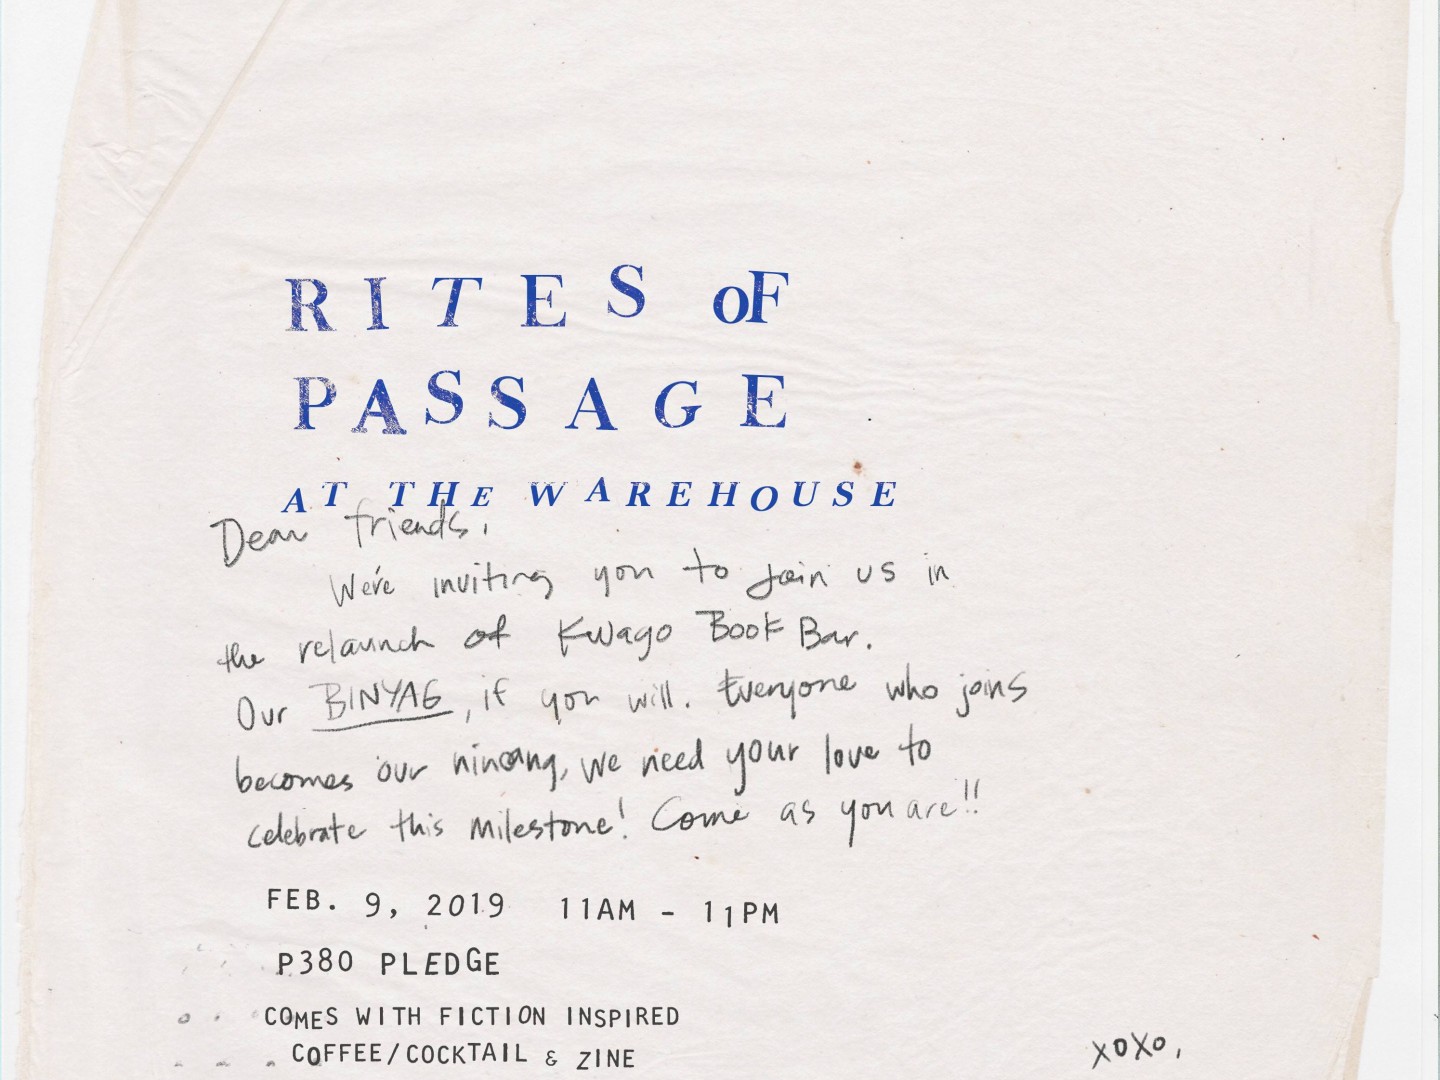 RITES oF
PASSAGE
AT THE WAREHOUSE
Dear friends,
We're inviting you to join us in
the relaunch of Kwago Book Bar.
Our BINYAG, if you will. Everyone who joins
becomes our ninang, we need your love to
celebrate this milestone! Come as you are!!
FEB. 9, 2019 11AM - 11PM
P380 PLEDGE
COMES WITH FICTION INSPIRED
COFFEE/COCKTAIL & ZINE
XOXO,